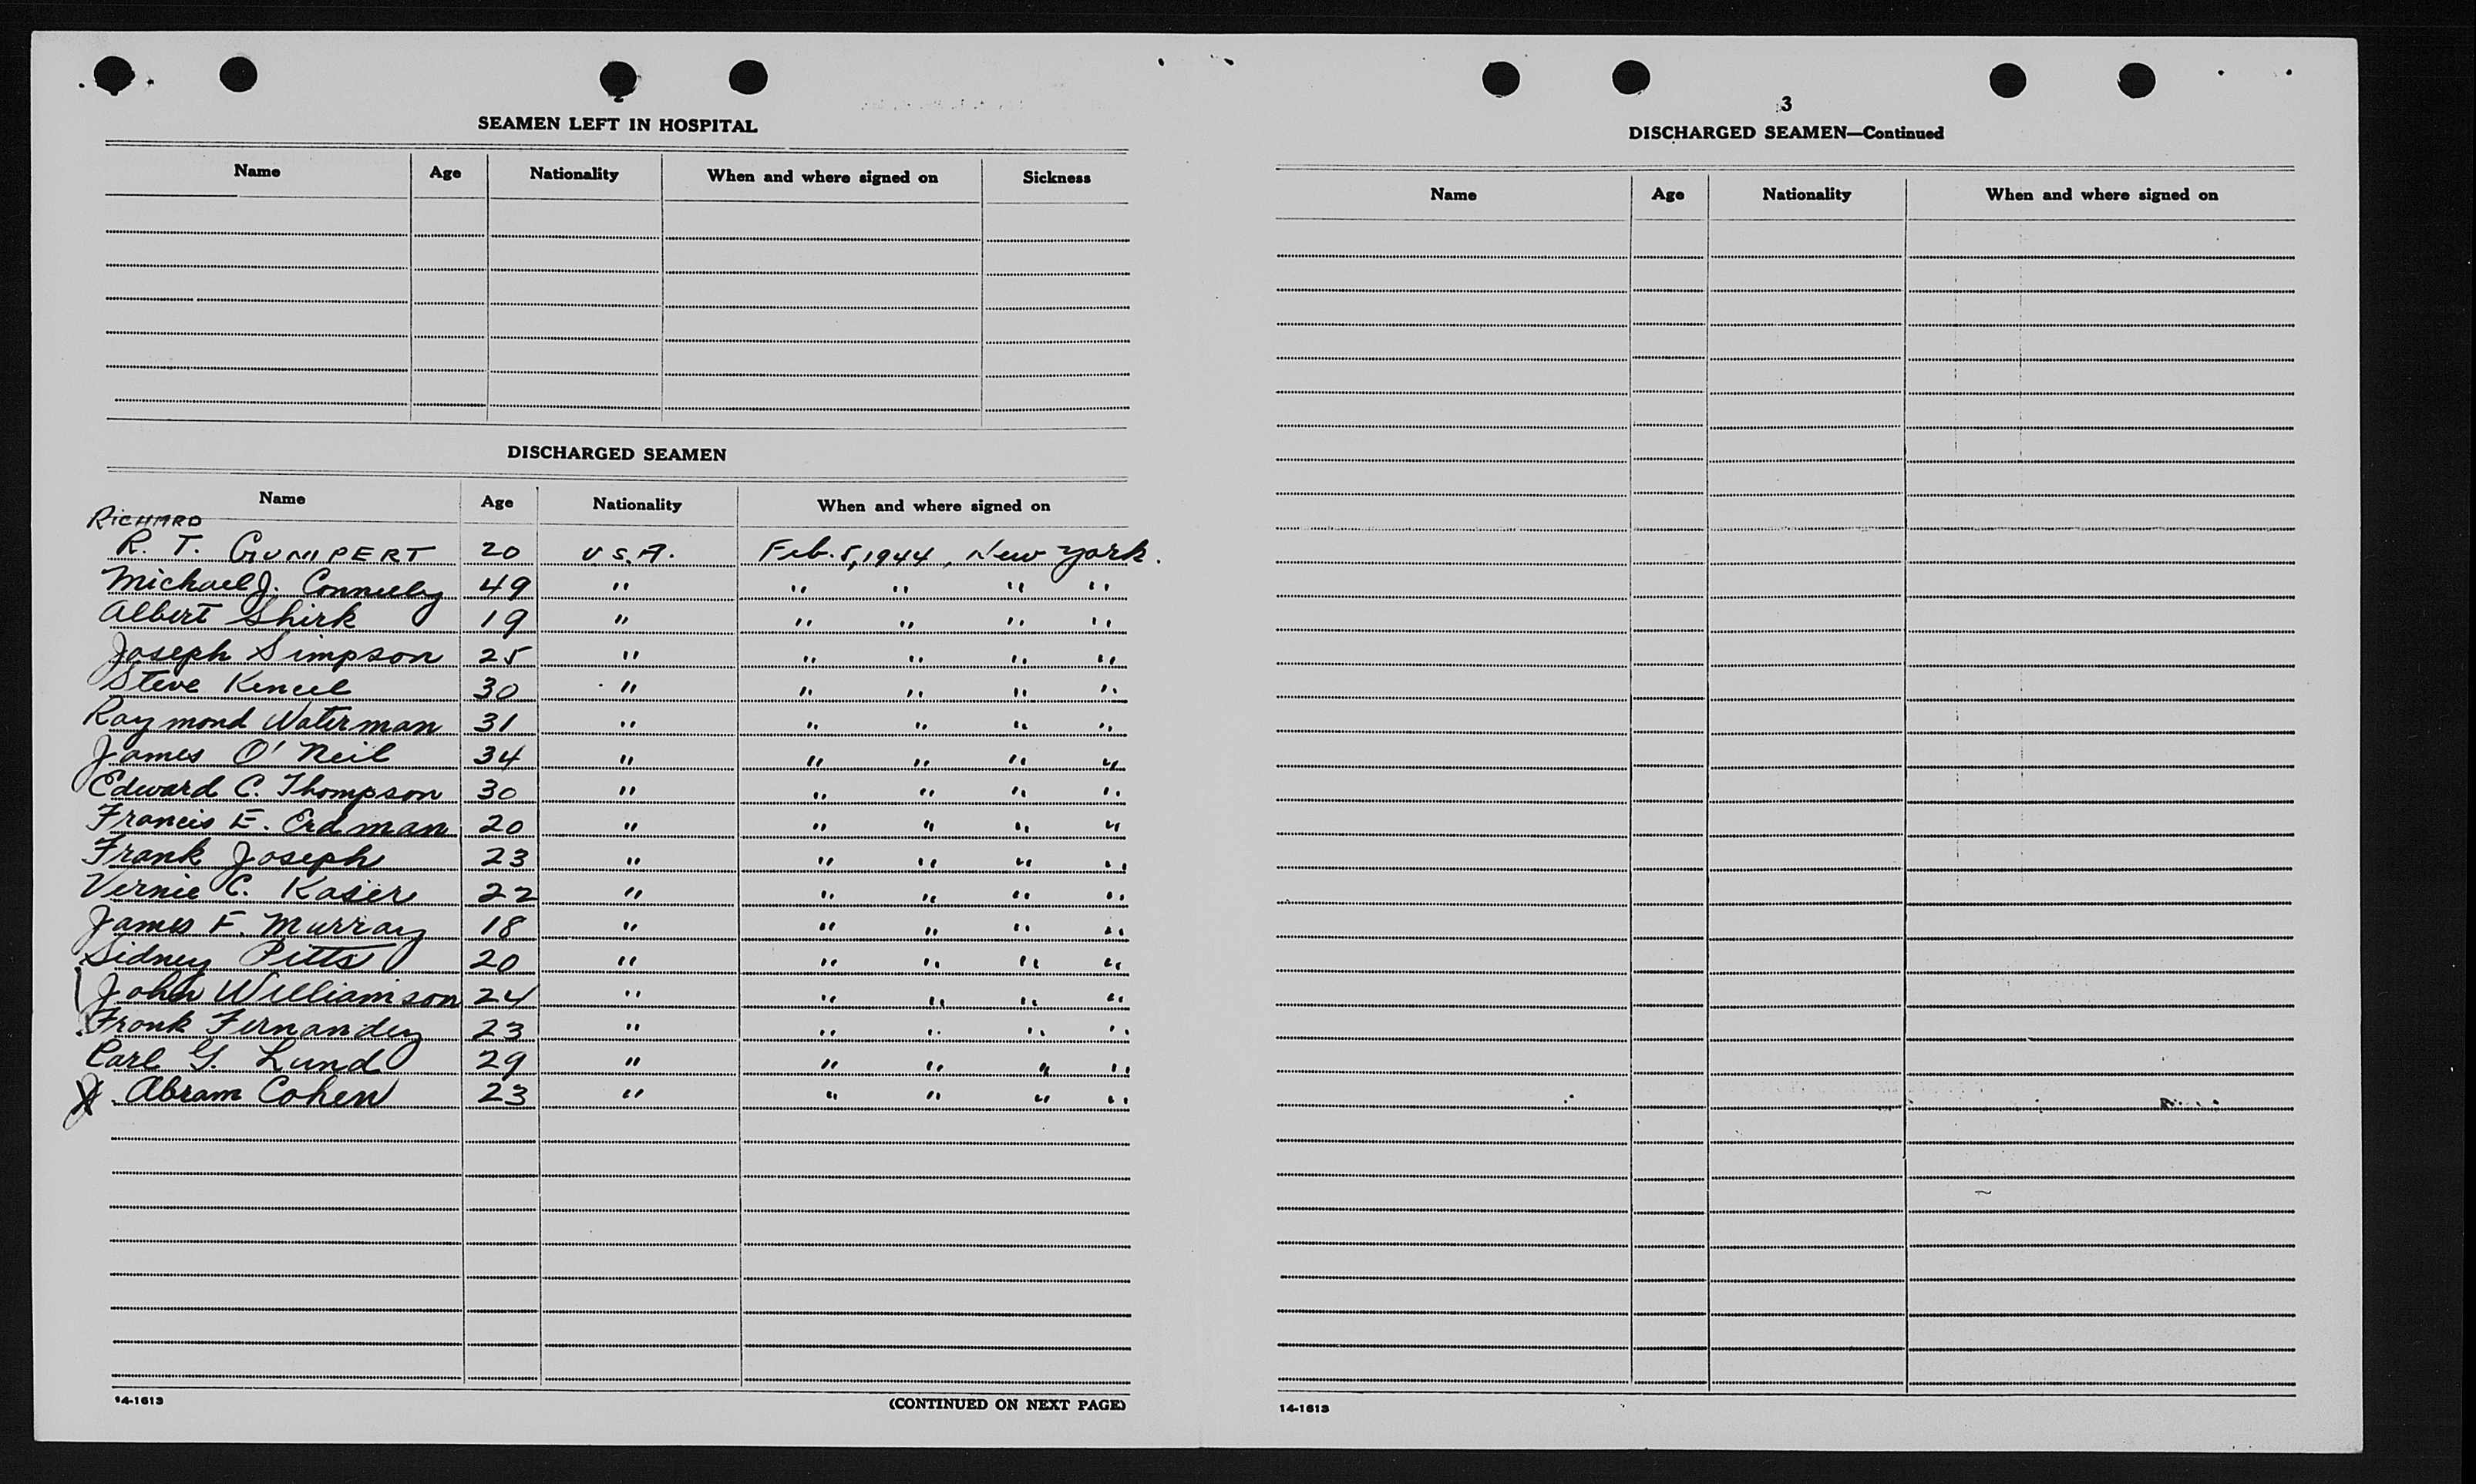 2
SEAMEN LEFT IN HOSPITAL
Name Age Nationality When and where signed on Sickness
DISCHARGED SEAMEN
Name Age Nationality When and where signed on
RICHARD
R. T. GUMPERT 20 U.S.A. Feb. 5, 1944, New York.
Michael J. 49 " " " " "
Albert Shirk 19 " " " " "
Joseph Simpson 25 " " " " "
Steve 30 " " " " "
Raymond Waterman 31 " " " " "
James O'Neil 34 " " " " "
Edward C. Thompson 30 " " " " "
Francis E. Erdman 20 " " " " "
Frank Joseph 23 " " " " "
Vernie C. Kaser 22 " " " " "
James F. Murray 18 " " " " "
Sidney Pitts 20 " " " " "
John Williamson 24 " " " " "
Frank Fernandez 23 " " " " "
Carl G. Lund 29 " " " " "
Abram Cohen 23 " " " " "
14-1613 (CONTINUED ON NEXT PAGE)
3
DISCHARGED SEAMEN—Continued
Name Age Nationality When and where signed on
14-1613